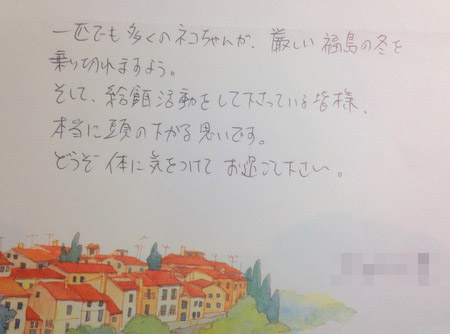 一匹でも多くのネコちゃんが、厳しい福島の冬を
乗り切れますよう。
そして、給餌活動をして下さっている皆様、
本当に頭の下がる思いです。
どうぞ体に気をつけてお過ごし下さい。